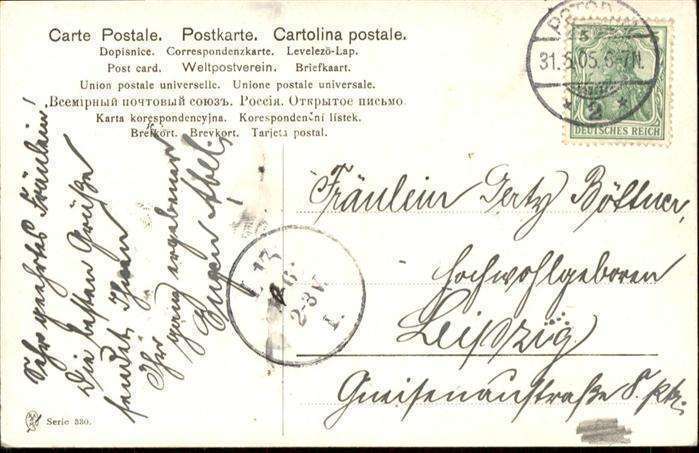 Carte Postale. Postkarte. Cartolina postale.
Dopisnice. Correspondenzkarte. Levelező-Lap.
Post card. Weltpostverein. Briefkaart.
Union postale universelle. Unione postale universale.
Всемірный почтовый союзъ. Россія. Открытое письмо.
Karta korespondencyjna. Korespondenční lístek.
Brefkort. Brevkort. Tarjeta postal.
31.5.05. 6-7N.
* 2 *
DEUTSCHES REICH
Sehr geehrtes Fräulein!
Die besten Grüße
sendet Ihnen
Ihr ganz ergebener
Eugen Abel.
2-3V.
1.
Fräulein Böttner,
Hochwohlgeboren
Leipzig
Gneisenaustraße 8
Serie 330.